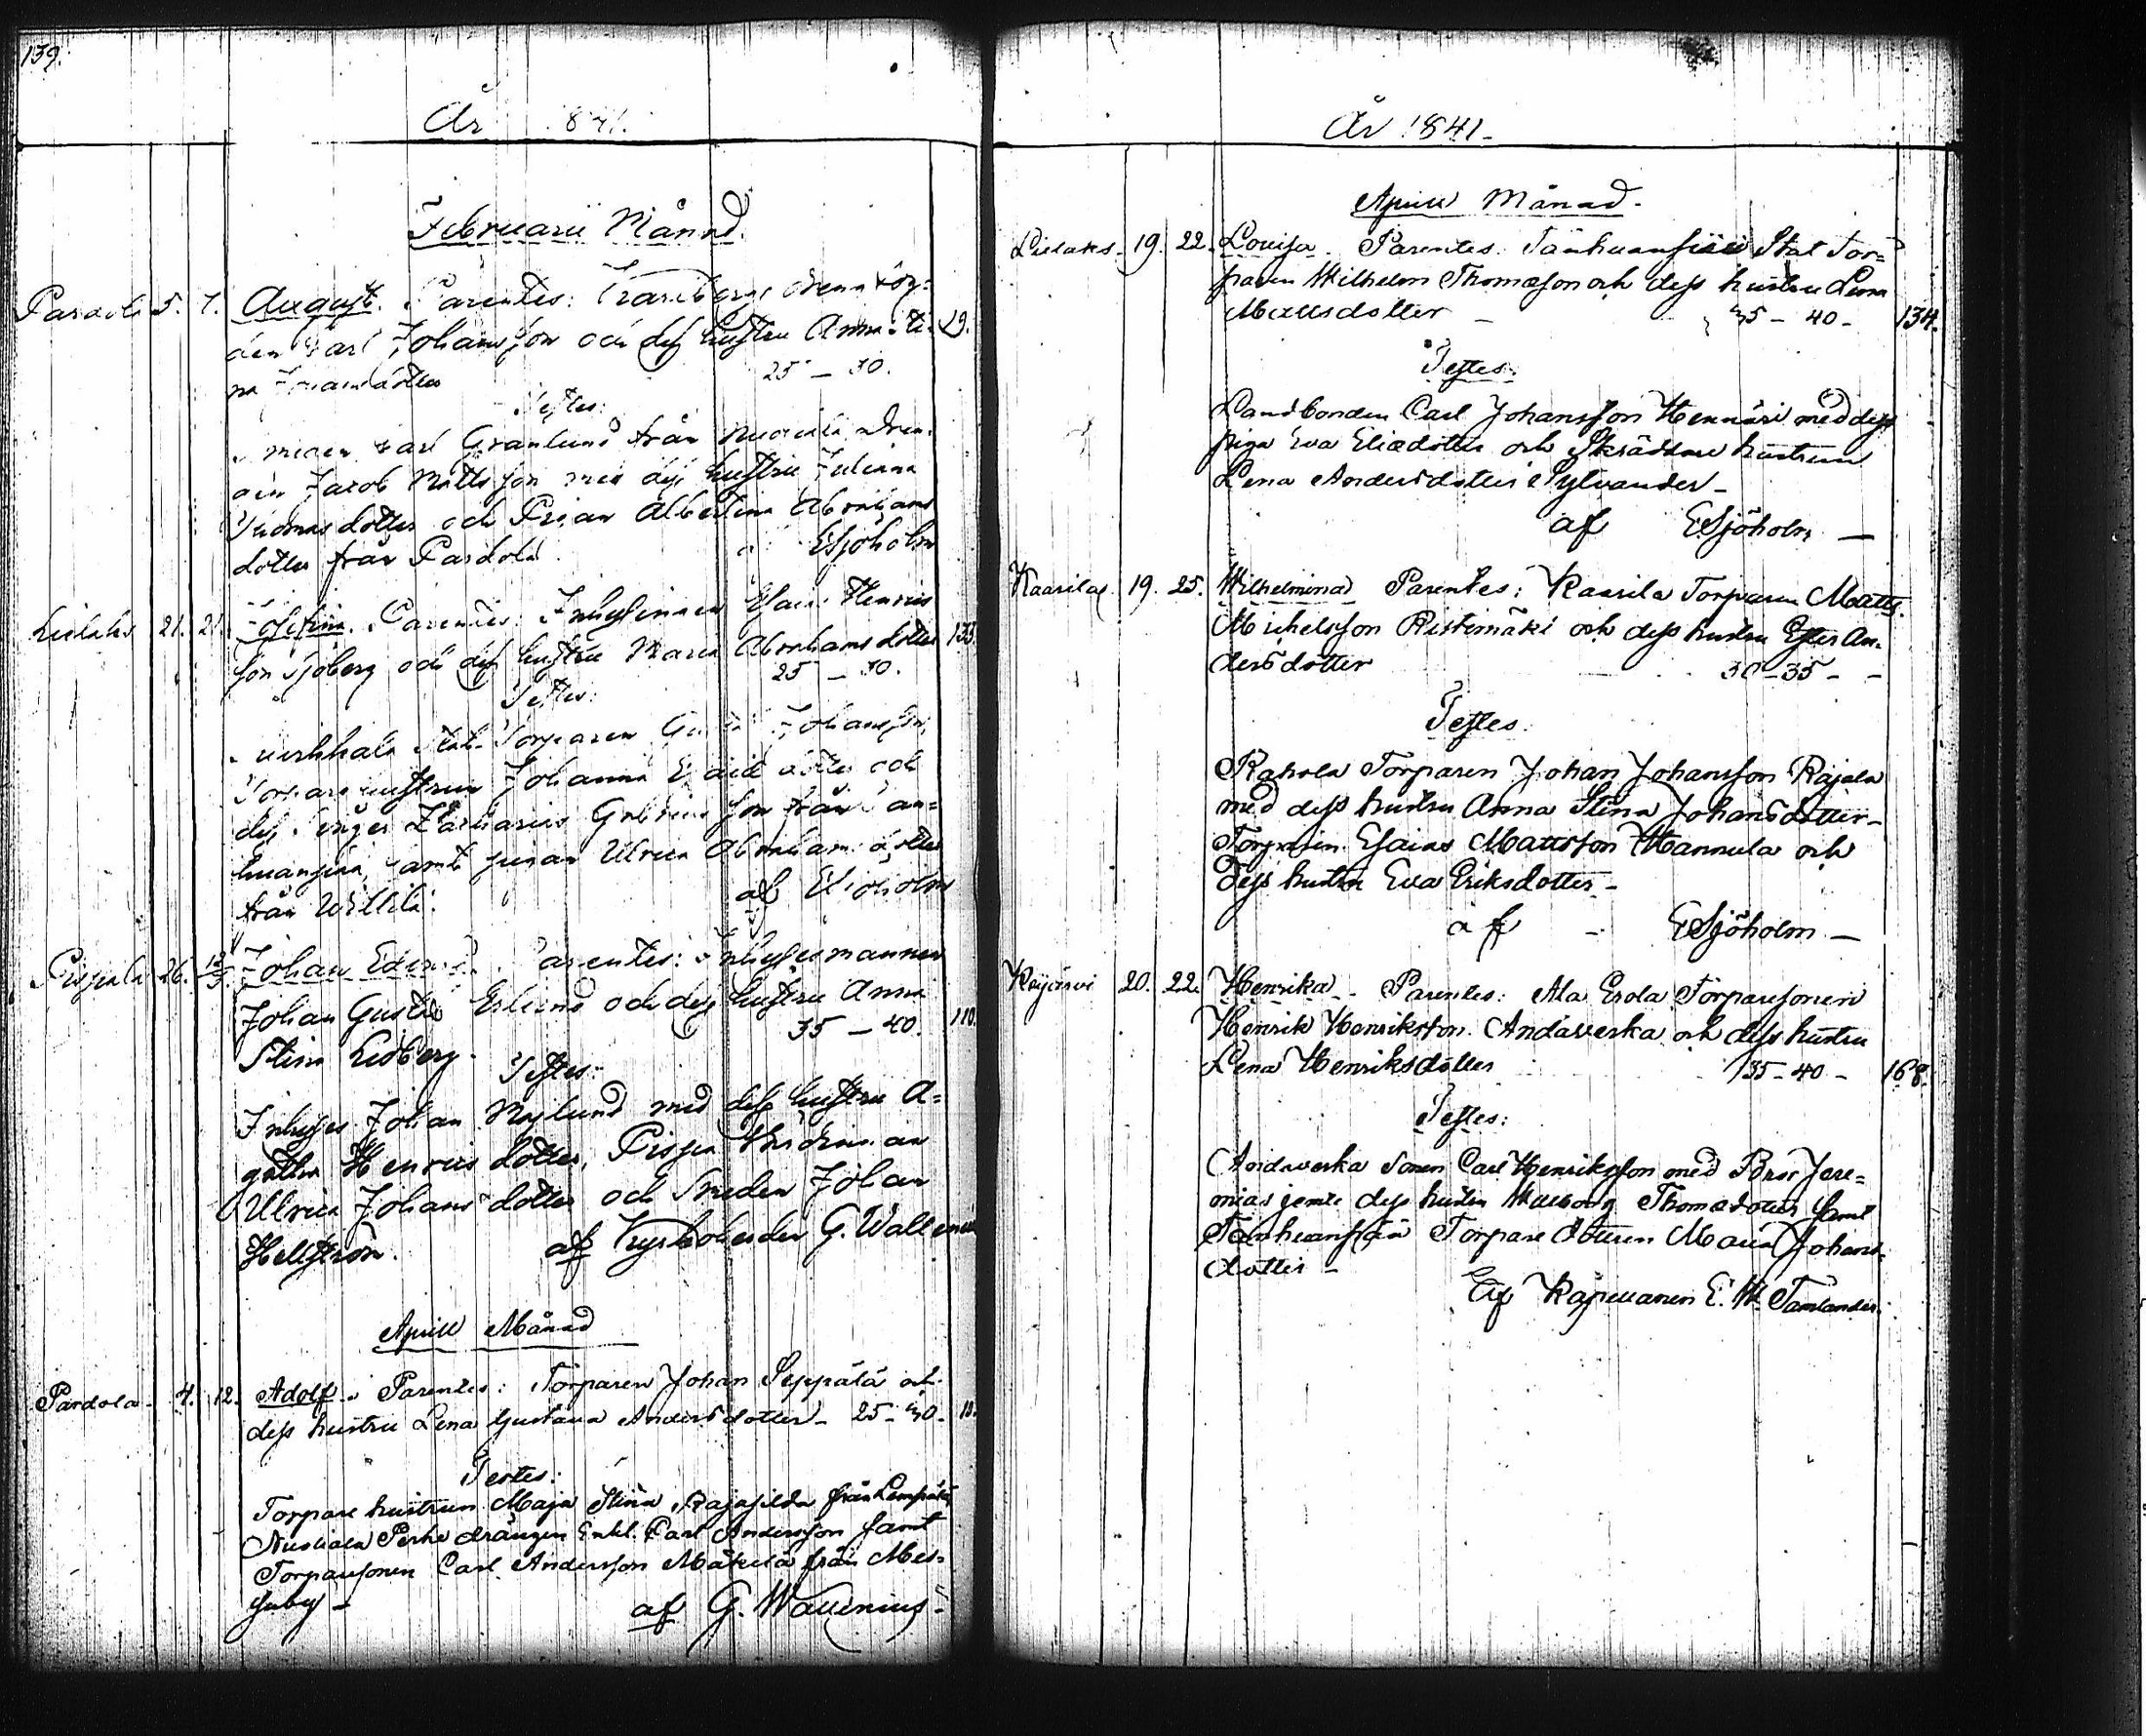 139.
År 1841.
Februarii Månad.
Pardola 5. 7. August. Parentes:
den Carl Johansson och dess hustru Anna Sti- 29.
na Johansdotter 25 - 30.
Testes:
Carl Granlund från
Jacob Mattsson med dess hustru Juliana
Thomasdotter och Pigan Albertina Abrahams
dotter från Pardola. af ESjöholm
Lielaks 21. 21. Josefina. Parentes: Inhysinnen Esaias Henrics
son Sjöberg och dess hustru Maria Abrahamsdotter 133
25 - 30.
Testes:
Stat-Torparen Johansson,
Torpare hustrun Johanna Esaiedotter och
dess Zacharias Gabrielsson från Tan-
huanpää, samt pigan Ulrica Abrahamsdotter
från Willilä. af ESjöholm
Pispala 26. 12/3. Johan Edvard. Parentes: Inhysesmannen
Johan Gustaf Erlund och dess hustru Anna
Stina Lidberg. 35 - 40. 110.
Testes:
Inhyses Johan med dess hustru A-
gatha Henricsdotter, Pispa
Ulrica Johansdotter och Smeden Johan
Hellström. af Kyrkoherden G. Wallenius
Aprill Månad
Pardola. 4. 12. Adolf. Parentes: Torparen Johan Seppälä och
dess hustru Lena Gustava Andersdotter - 25 - 30 -
Testes:
Torpare hustrun Maja Stina Rajasilda från Lempälä
Nuoliala Perhe drängen Enkl. Carl Andersson samt
Torparesonen Carl Andersson Mäkelä från Mes-
suby - af G. Wallenius -
År 1841-
Aprill Månad.
Lielaks. 19. 22. Lovisa. Parentes: Tanhuanpää Stat Tor-
paren Wilhelm Thomasson och dess hustru Lena
Mattsdotter - 35 - 40 - 134.
Testes:
Landbonden Carl Johansson Hennäri med dess
piga Eva Eliædotter och Skräddare hustrun
Lena Andersdotter Sylvander -
af ESjöholm -
Kaarila 19. 25. Wilhelmina Parentes: Kaarila Torparen Matts
Michelsson Ristimäki och dess hustru Ester An-
dersdotter 30 - 35 -
Testes:
Rahola Torparen Johan Johansson Rajala
med dess hustru Anna Stina Johansdotter -
Torparen Esaias Mattsson Hannula och
dess hustru Eva Eriksdotter -
af - ESjöholm -
Koijärvi 20. 22. Henrika - Parentes: Ala Erola Torparesonen
Henrik Henriksson Andaverka och dess hustru
Lena Henriksdotter 35 - 40 - 168.
Testes:
Andaverka sonen Carl Henriksson med Bror Jere-
mias jemte dess hustru Walborg Thomædotter samt
Tanhuanpää Torpare dottren Maria Johans-
dotter -
Af Kapellanen E. W. Tamlander.